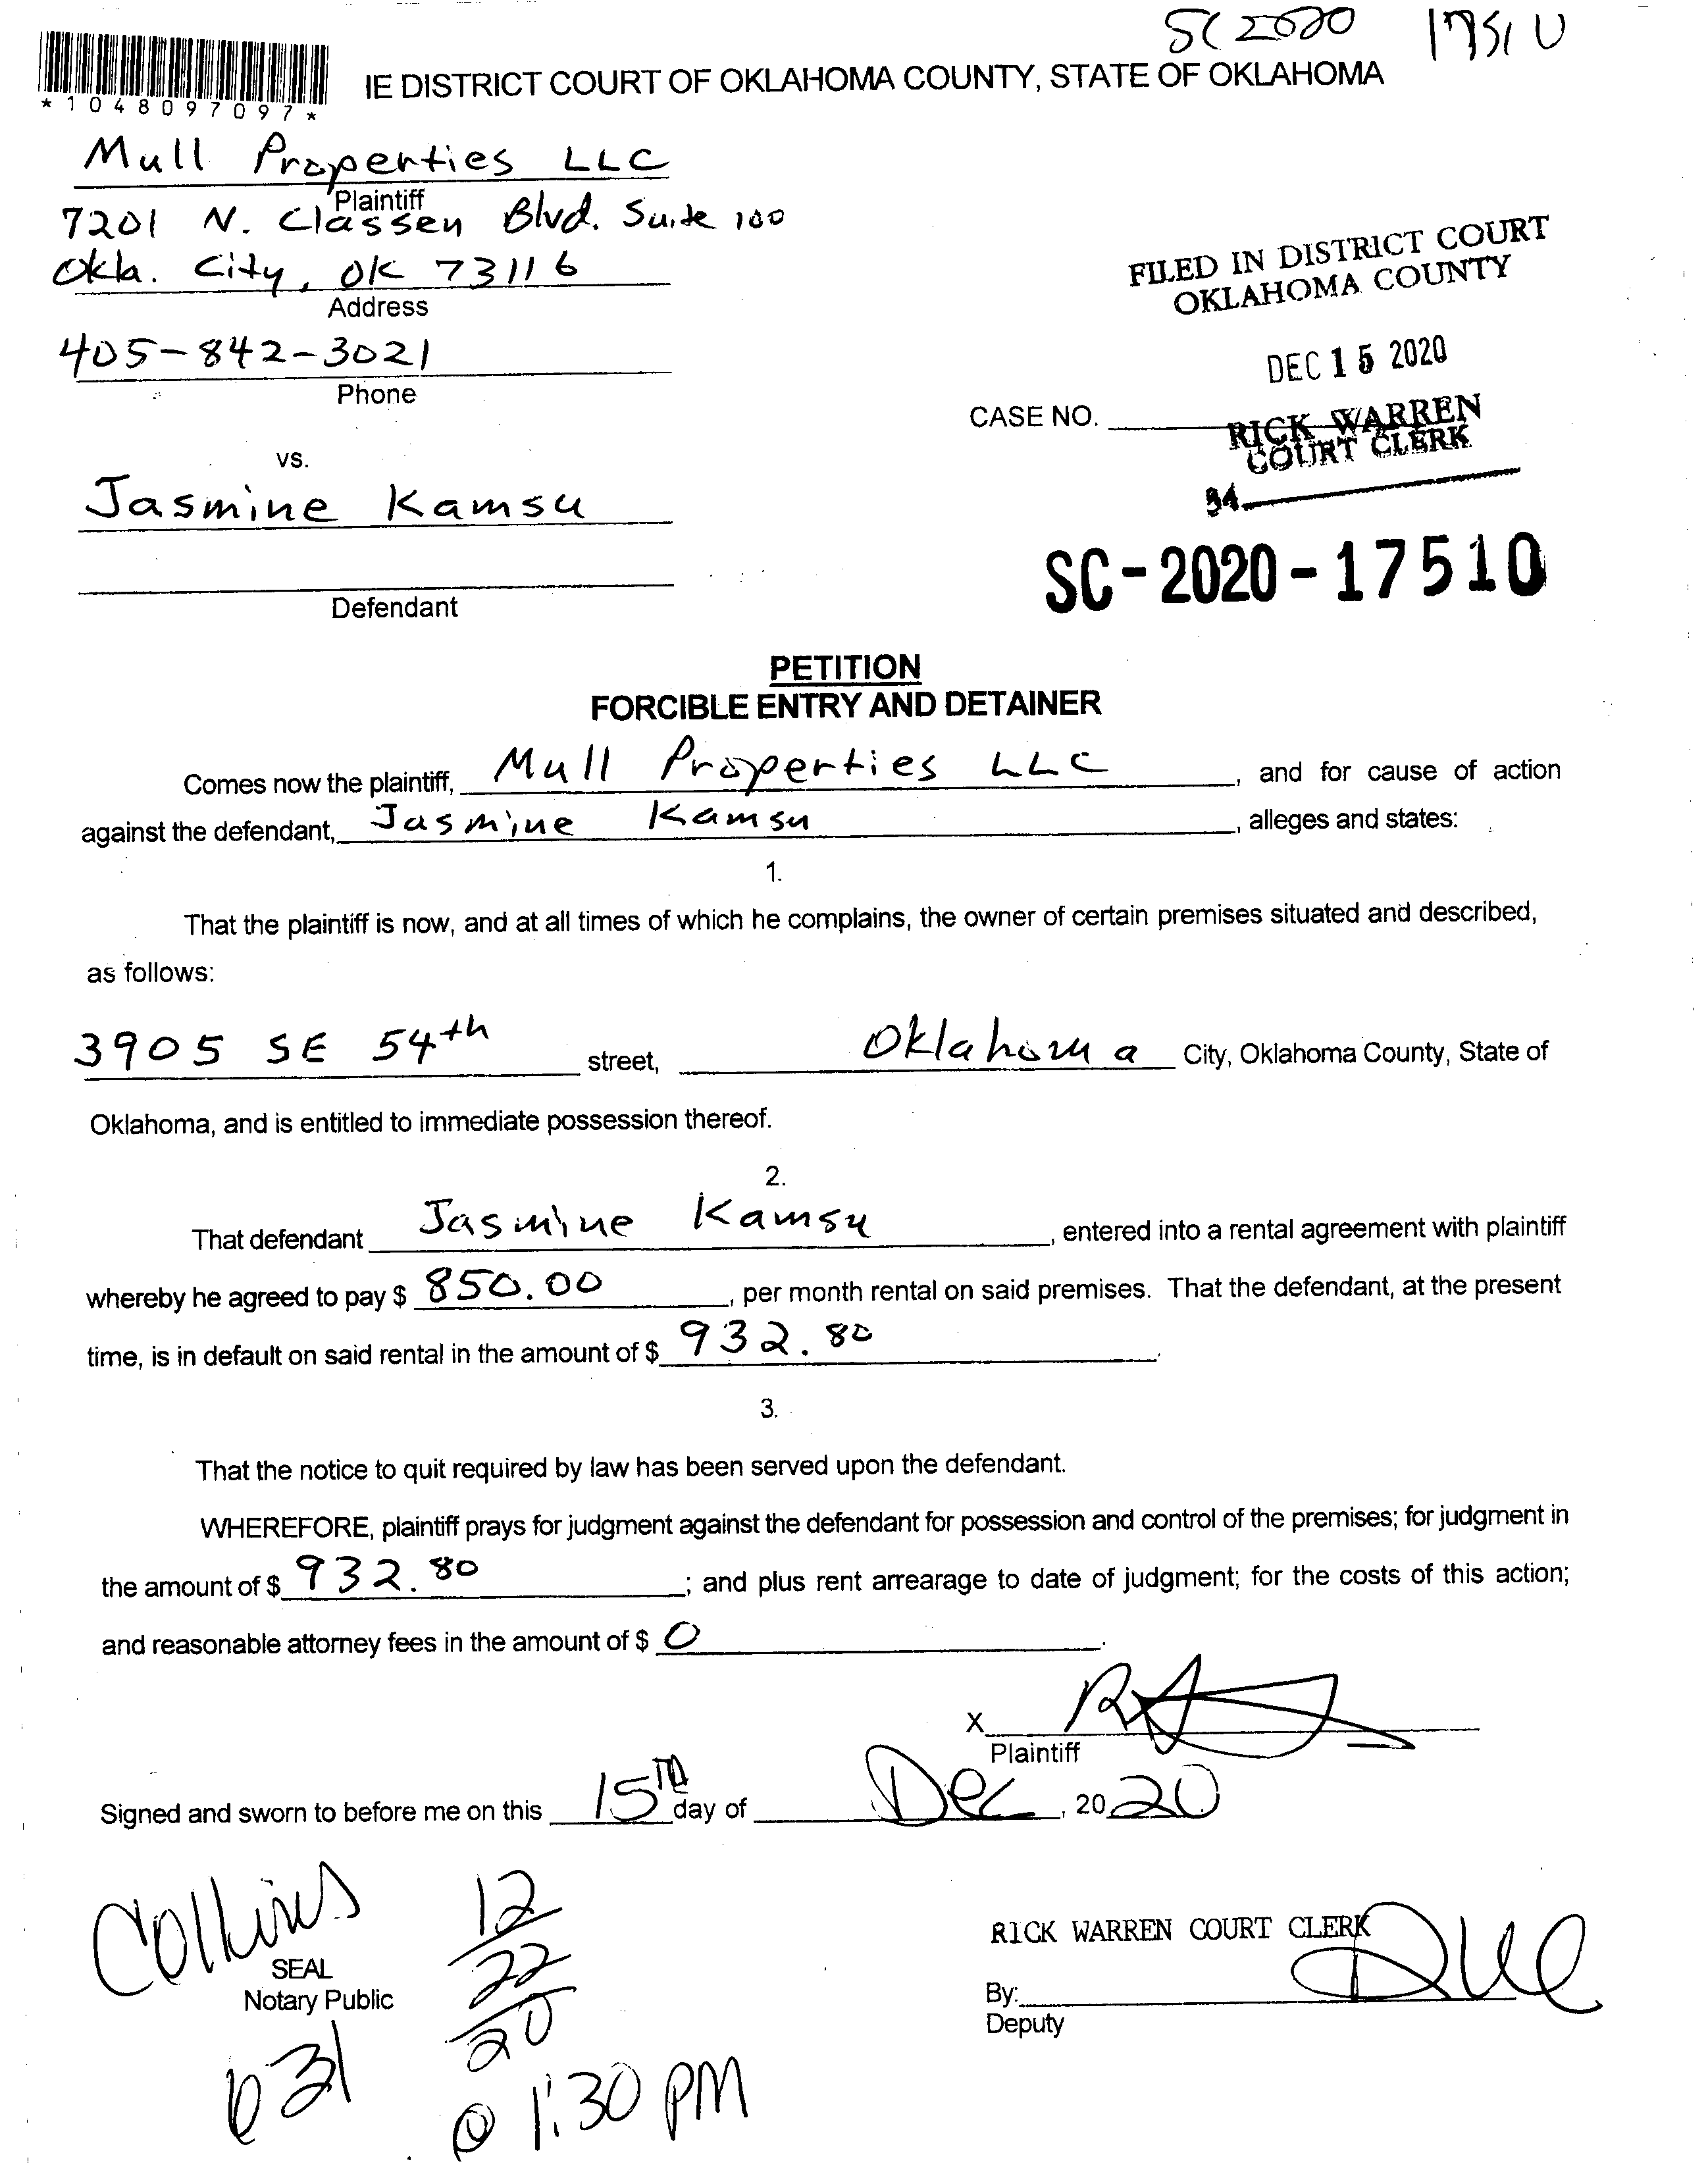 SC 2020 17510
IE DISTRICT COURT OF OKLAHOMA COUNTY, STATE OF OKLAHOMA
*1048097097*
Mull Properties LLC
Plaintiff
7201 N. Classen Blvd. Suite 100
Okla. City, OK 73116
Address
405-842-3021
Phone
FILED IN DISTRICT COURT
OKLAHOMA COUNTY
DEC 15 2020
CASE NO.
RICK WARREN
COURT CLERK
34
vs.
Jasmine Kamsu
Defendant
SC-2020-17510
PETITION
FORCIBLE ENTRY AND DETAINER
Comes now the plaintiff, Mull Properties LLC, and for cause of action
against the defendant, Jasmine Kamsu, alleges and states:
1.
That the plaintiff is now, and at all times of which he complains, the owner of certain premises situated and described,
as follows:
3905 SE 54th street, Oklahoma City, Oklahoma County, State of
Oklahoma, and is entitled to immediate possession thereof.
2.
That defendant Jasmine Kamsu, entered into a rental agreement with plaintiff
whereby he agreed to pay $ 850.00, per month rental on said premises. That the defendant, at the present
time, is in default on said rental in the amount of $ 932.80.
3.
That the notice to quit required by law has been served upon the defendant.
WHEREFORE, plaintiff prays for judgment against the defendant for possession and control of the premises; for judgment in
the amount of $ 932.80; and plus rent arrearage to date of judgment; for the costs of this action;
and reasonable attorney fees in the amount of $ 0.
X
Plaintiff
Signed and sworn to before me on this 15th day of Dec, 2020
Collins
SEAL
Notary Public
12
22
20
@ 1:30 PM
RICK WARREN COURT CLERK
By:
Deputy